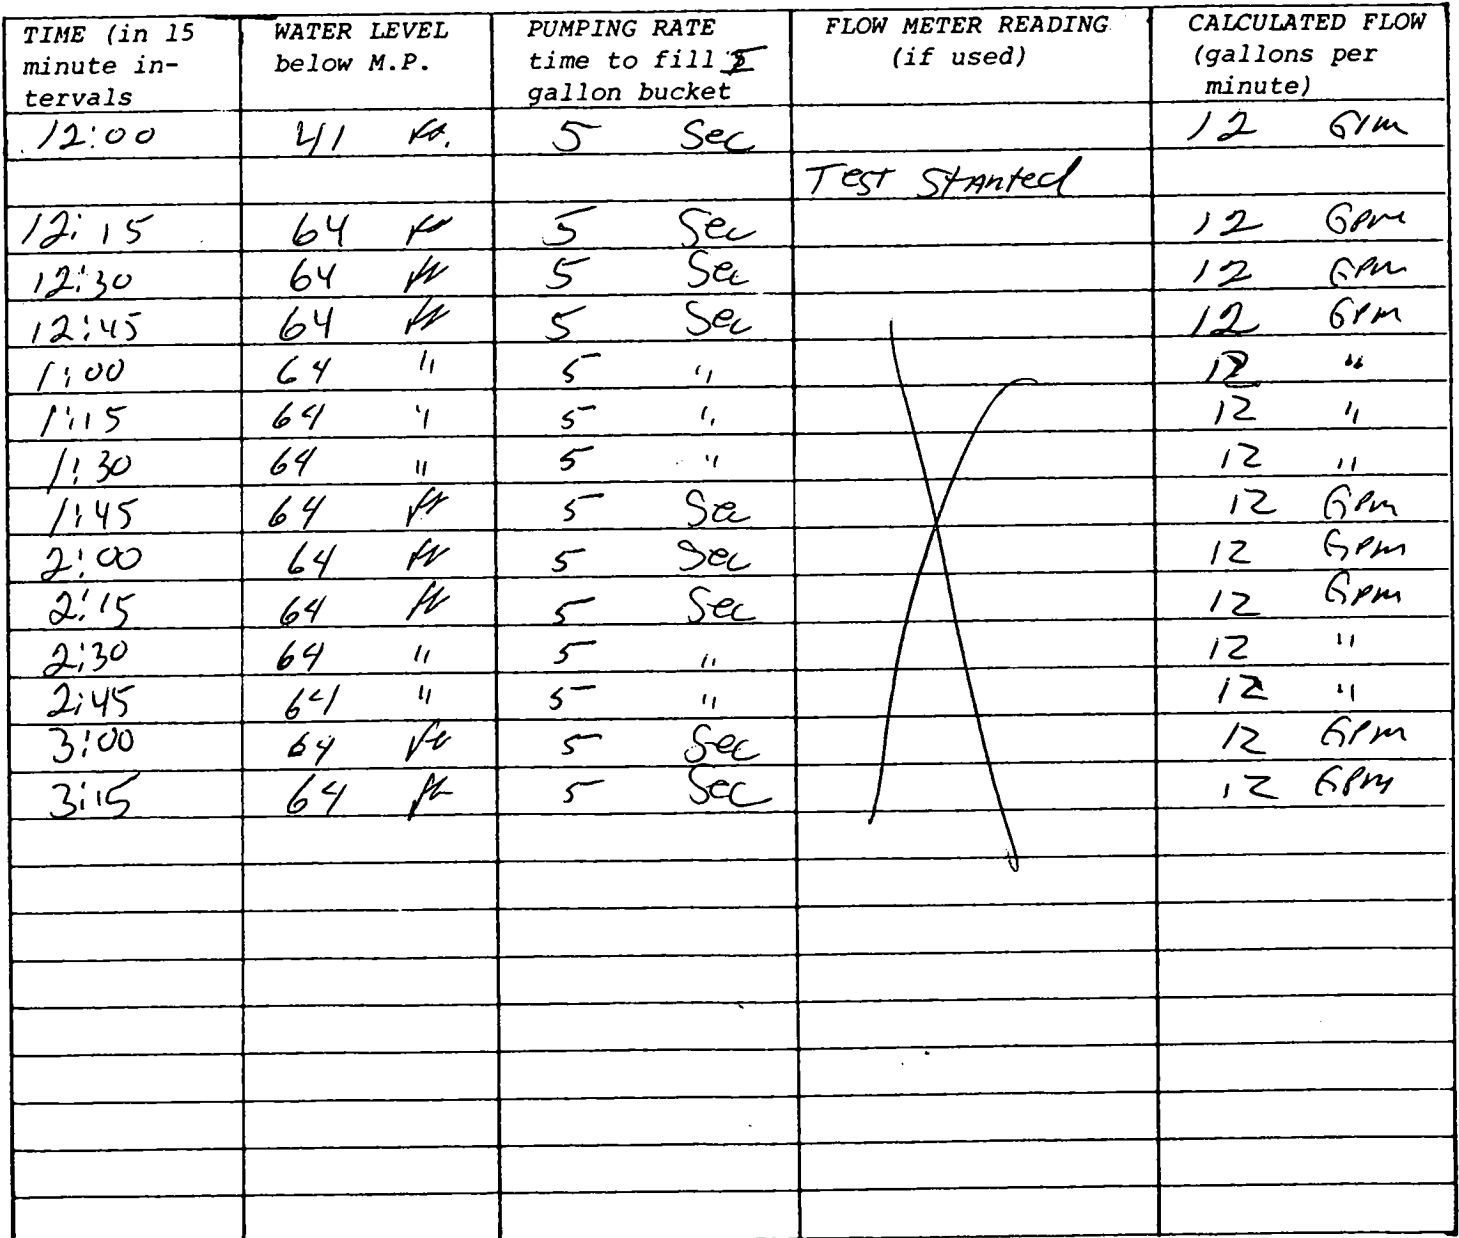 TIME (in 15 minute in-tervals | WATER LEVEL below M.P. | PUMPING RATE time to fill gallon bucket | FLOW METER READING (if used) | CALCULATED FLOW (gallons per minute)
12:00 41 ft. 5 Sec 12 GPM
Test Started
12:15 64 ft 5 Sec 12 GPM
12:30 64 ft 5 Sec 12 GPM
12:45 64 ft 5 Sec 12 GPM
1:00 64 " 5 " 12 "
1:15 64 " 5 " 12 "
1:30 64 " 5 " 12 "
1:45 64 ft 5 Sec 12 GPM
2:00 64 ft 5 Sec 12 GPM
2:15 64 ft 5 Sec 12 GPM
2:30 64 " 5 " 12 "
2:45 64 " 5 " 12 "
3:00 64 ft 5 Sec 12 GPM
3:15 64 ft 5 Sec 12 GPM